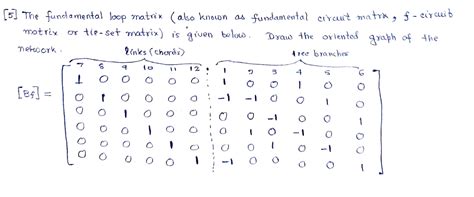 [5] The fundamental loop matrix (also known as fundamental circuit matrix, f-circuit
matrix or tie-set matrix) is given below. Draw the oriented graph of the
network.
links (chords) tree branches
7 8 9 10 11 12 1 2 3 4 5 6
1 0 0 0 0 0 1 0 0 1 0 0
[Bf] = 0 1 0 0 0 0 -1 -1 0 0 1 0
0 0 1 0 0 0 0 0 -1 0 0 1
0 0 0 1 0 0 0 1 0 -1 0 0
0 0 0 0 1 0 0 0 1 0 -1 0
0 0 0 0 0 1 -1 0 0 0 0 1